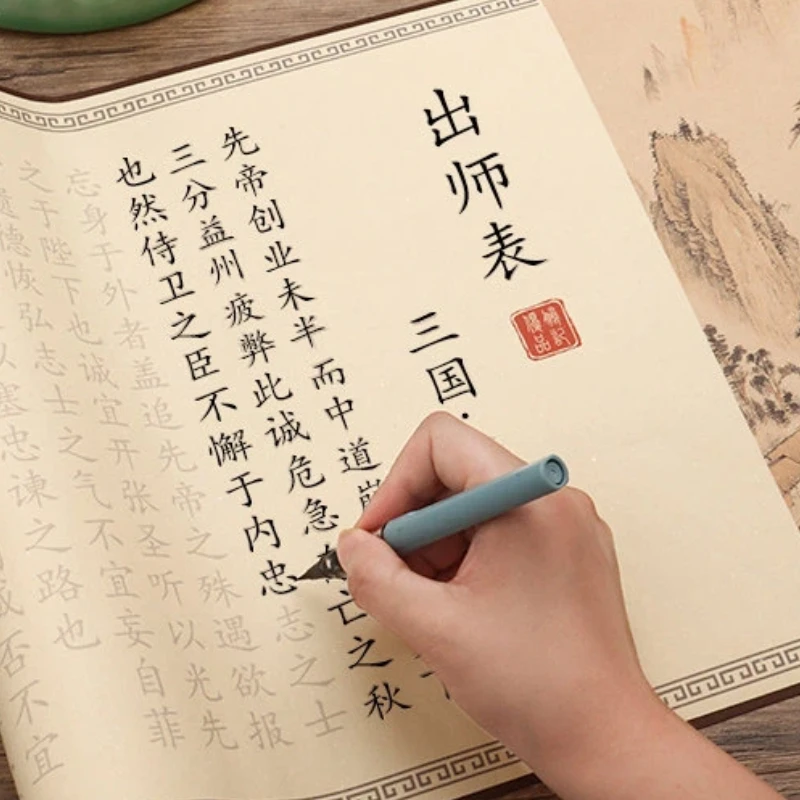 出师表
三国·
先帝创业未半而中道崩
三分益州疲弊此诚危急亡之秋
也然侍卫之臣不懈于内忠志之士
忘身于外者盖追先帝之殊遇欲报
之于陛下也诚宜开张圣听以光先
遗德恢弘志士之气不宜妄自菲
以塞忠谏之路也
否不宜